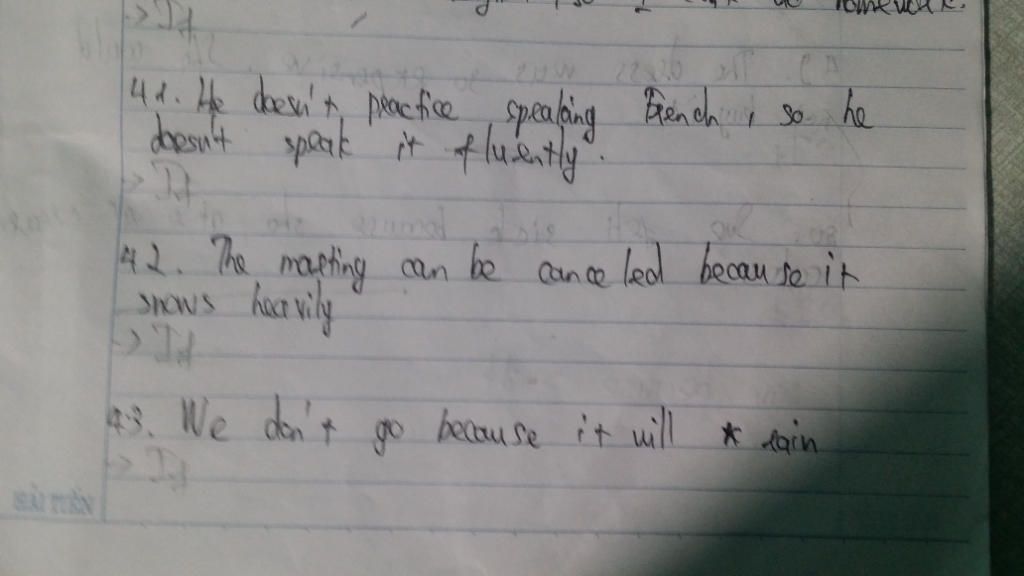 homework.
-> If
41. He doesn't practice speaking French, so he
doesn't speak it fluently.
-> If
42. The meeting can be canceled because it
snows heavily
-> If
43. We don't go because it will rain
-> If
HẢI TIẾN